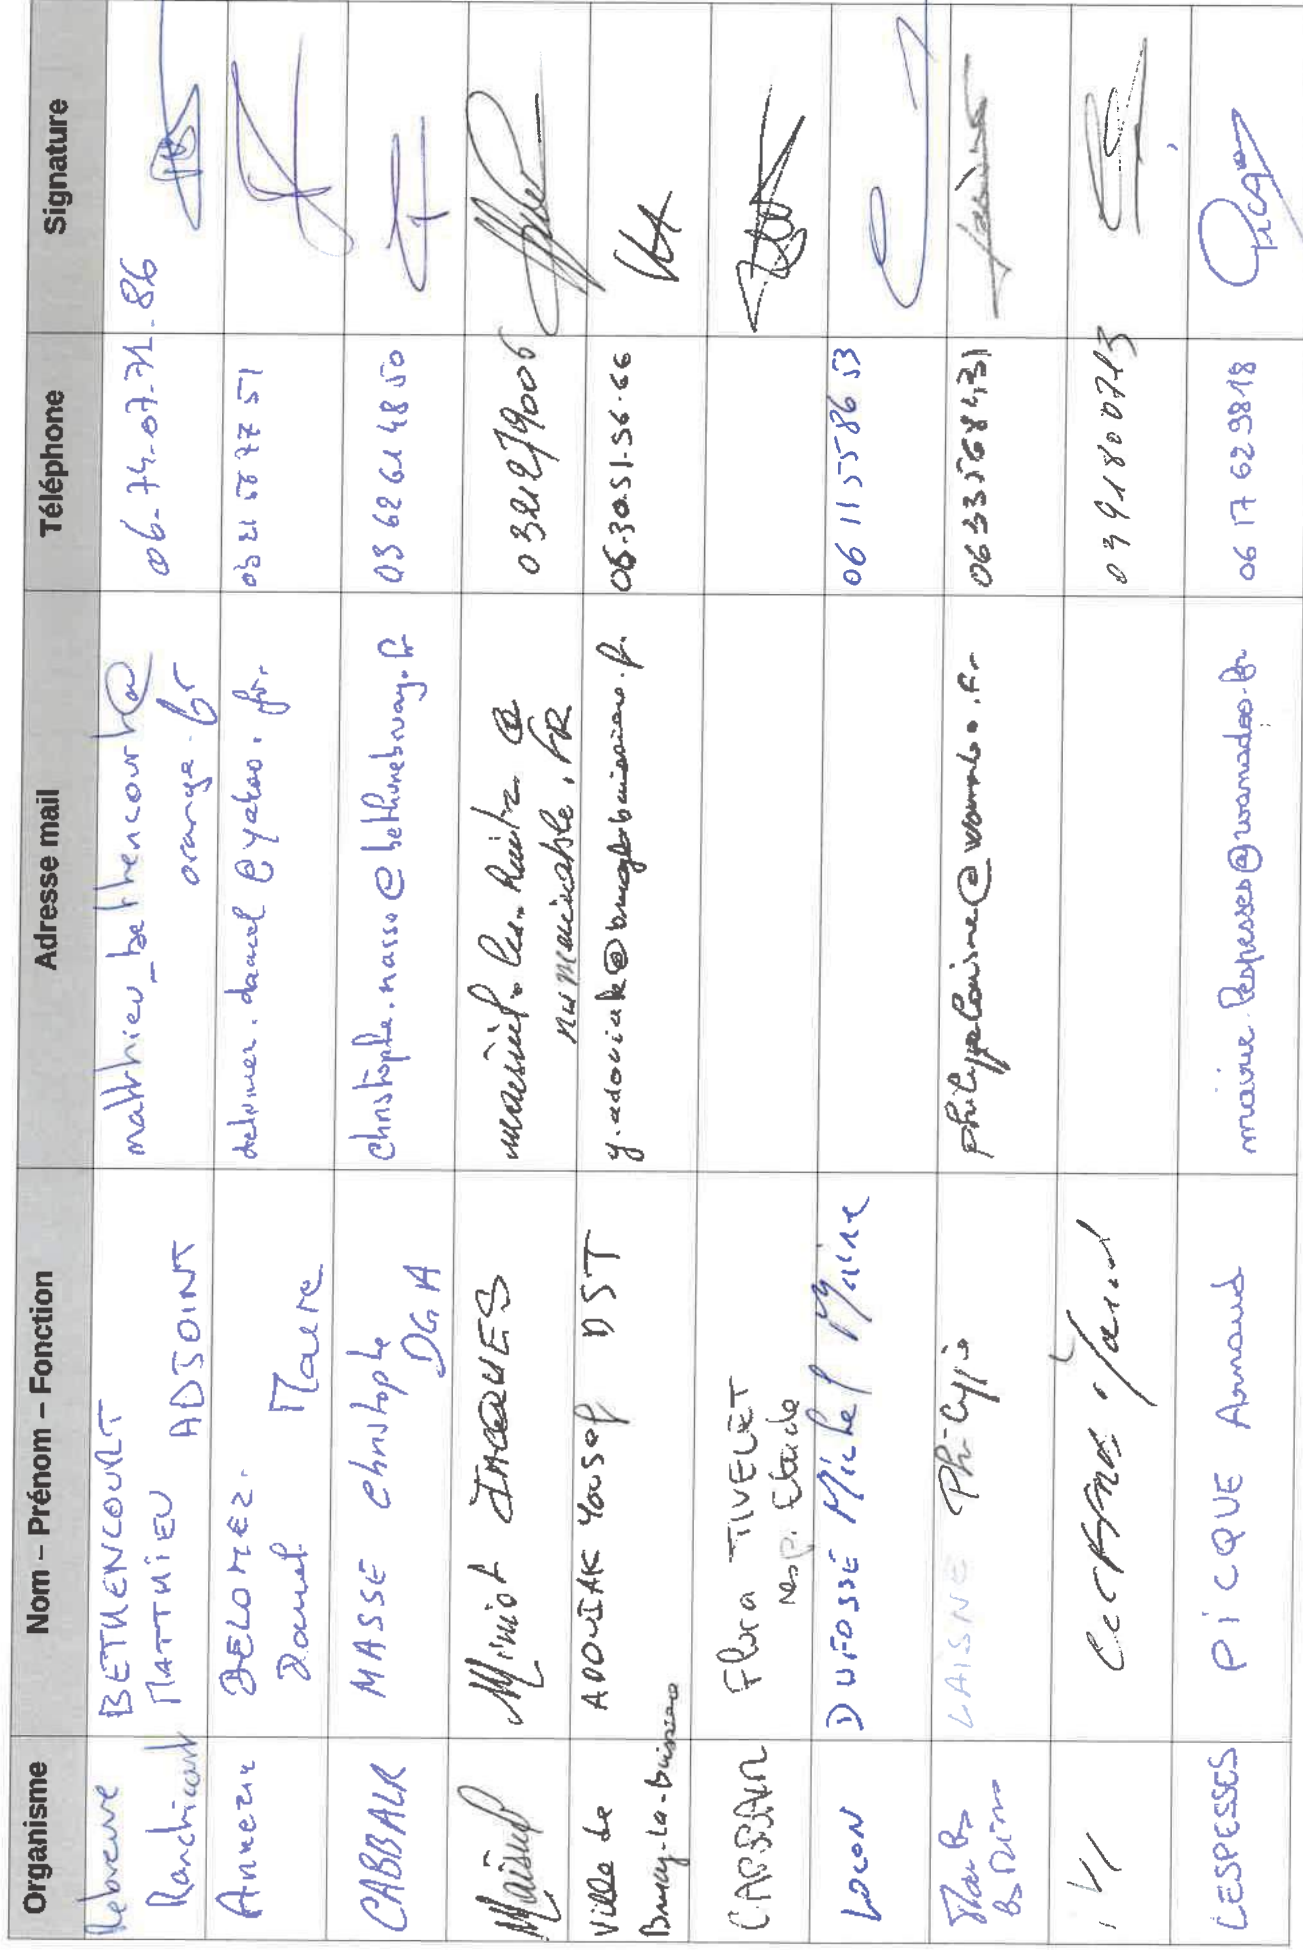 Organisme Nom – Prénom – Fonction Adresse mail Téléphone Signature
Rebreuve
Ranchicourt
BETHENCOURT
MATTHIEU
ADJOINT
matthieu_bethencourt@
orange.fr
06-74-07-71-86
Annezin
DELOMEZ
Daniel
Maire
delomez.daniel@yahoo.fr
0321577751
CABBALR
MASSE Christophe
DGA
christophe.masse@bethunebruay.fr
0362614850
Maisnil
Miniot JACQUES
numericable.FR
0321279006
Ville de
Bruay-la-Buissière
ADOUIAK Yousef DST
06.30.51.56.66
CABBALR
Flora TIVELET
resp. Etude
LOCON
DUFOSSÉ Michel Maire
06 11 55 86 53
LAISNE Philippe
philippe.laisne@wanadoo.fr
0633568431
0391800713
LESPESSES
PICQUE Arnaud
mairie.lespesses@wanadoo.fr
06 17 62 98 18
Picque